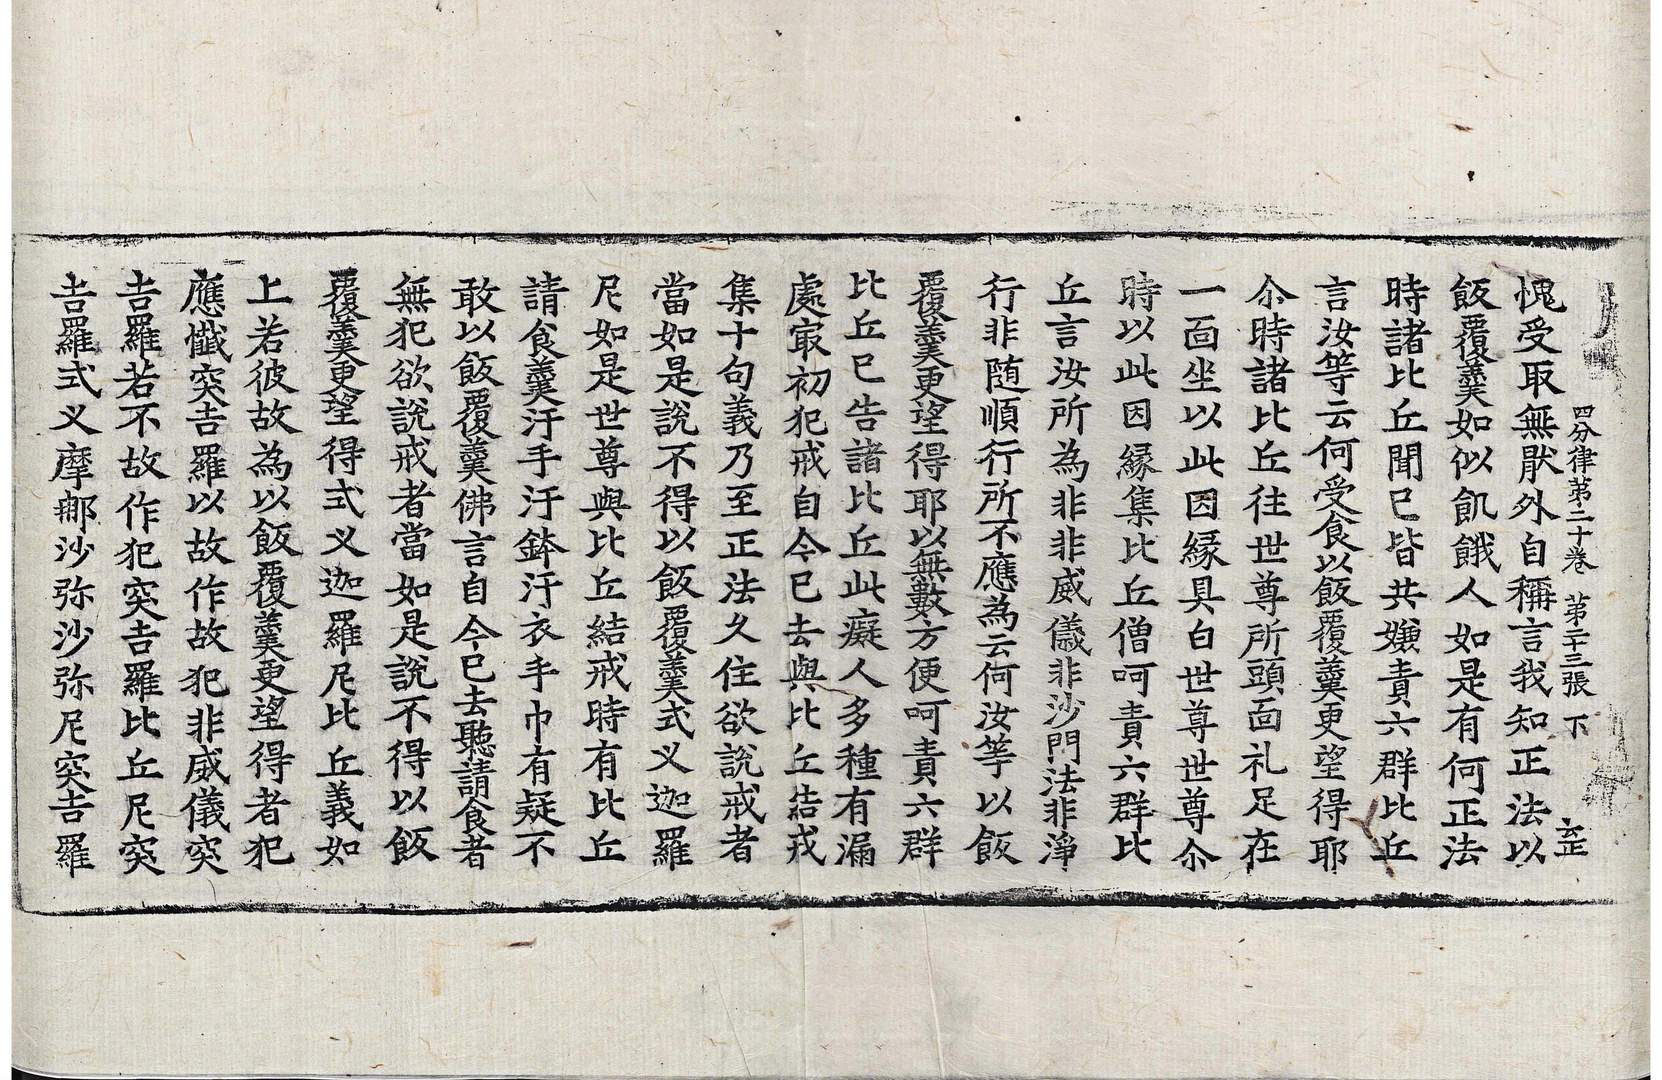 四分律苐二十卷　苐二十三張　下
愧受取無猒外自稱言我知正法以
飯覆羹如似飢餓人如是有何正法
時諸比丘聞已皆共嫌責六群比丘
言汝等云何受食以飯覆羹更望得耶
尒時諸比丘往世尊所頭面礼足在
一面坐以此因縁具白世尊世尊尒
時以此因縁集比丘僧呵責六群比
丘言汝所為非非威儀非沙門法非淨
行非随順行所不應為云何汝等以飯
覆羹更望得耶以無數方便呵責六群
比丘已告諸比丘此癡人多種有漏
處㝡初犯戒自今已去與比丘結戒
集十句義乃至正法久住欲説戒者
當如是説不得以飯覆羹式叉迦羅
尼如是世尊與比丘結戒時有比丘
請食羹汙手汙鉢汙衣手巾有疑不
敢以飯覆羹佛言自今已去聽請食者
無犯欲説戒者當如是説不得以飯
覆羹更望得式叉迦羅尼比丘義如
上若彼故為以飯覆羹更望得者犯
應懺突吉羅以故作故犯非威儀突
吉羅若不故作犯突吉羅比丘尼突
吉羅式叉摩那沙弥沙弥尼突吉羅